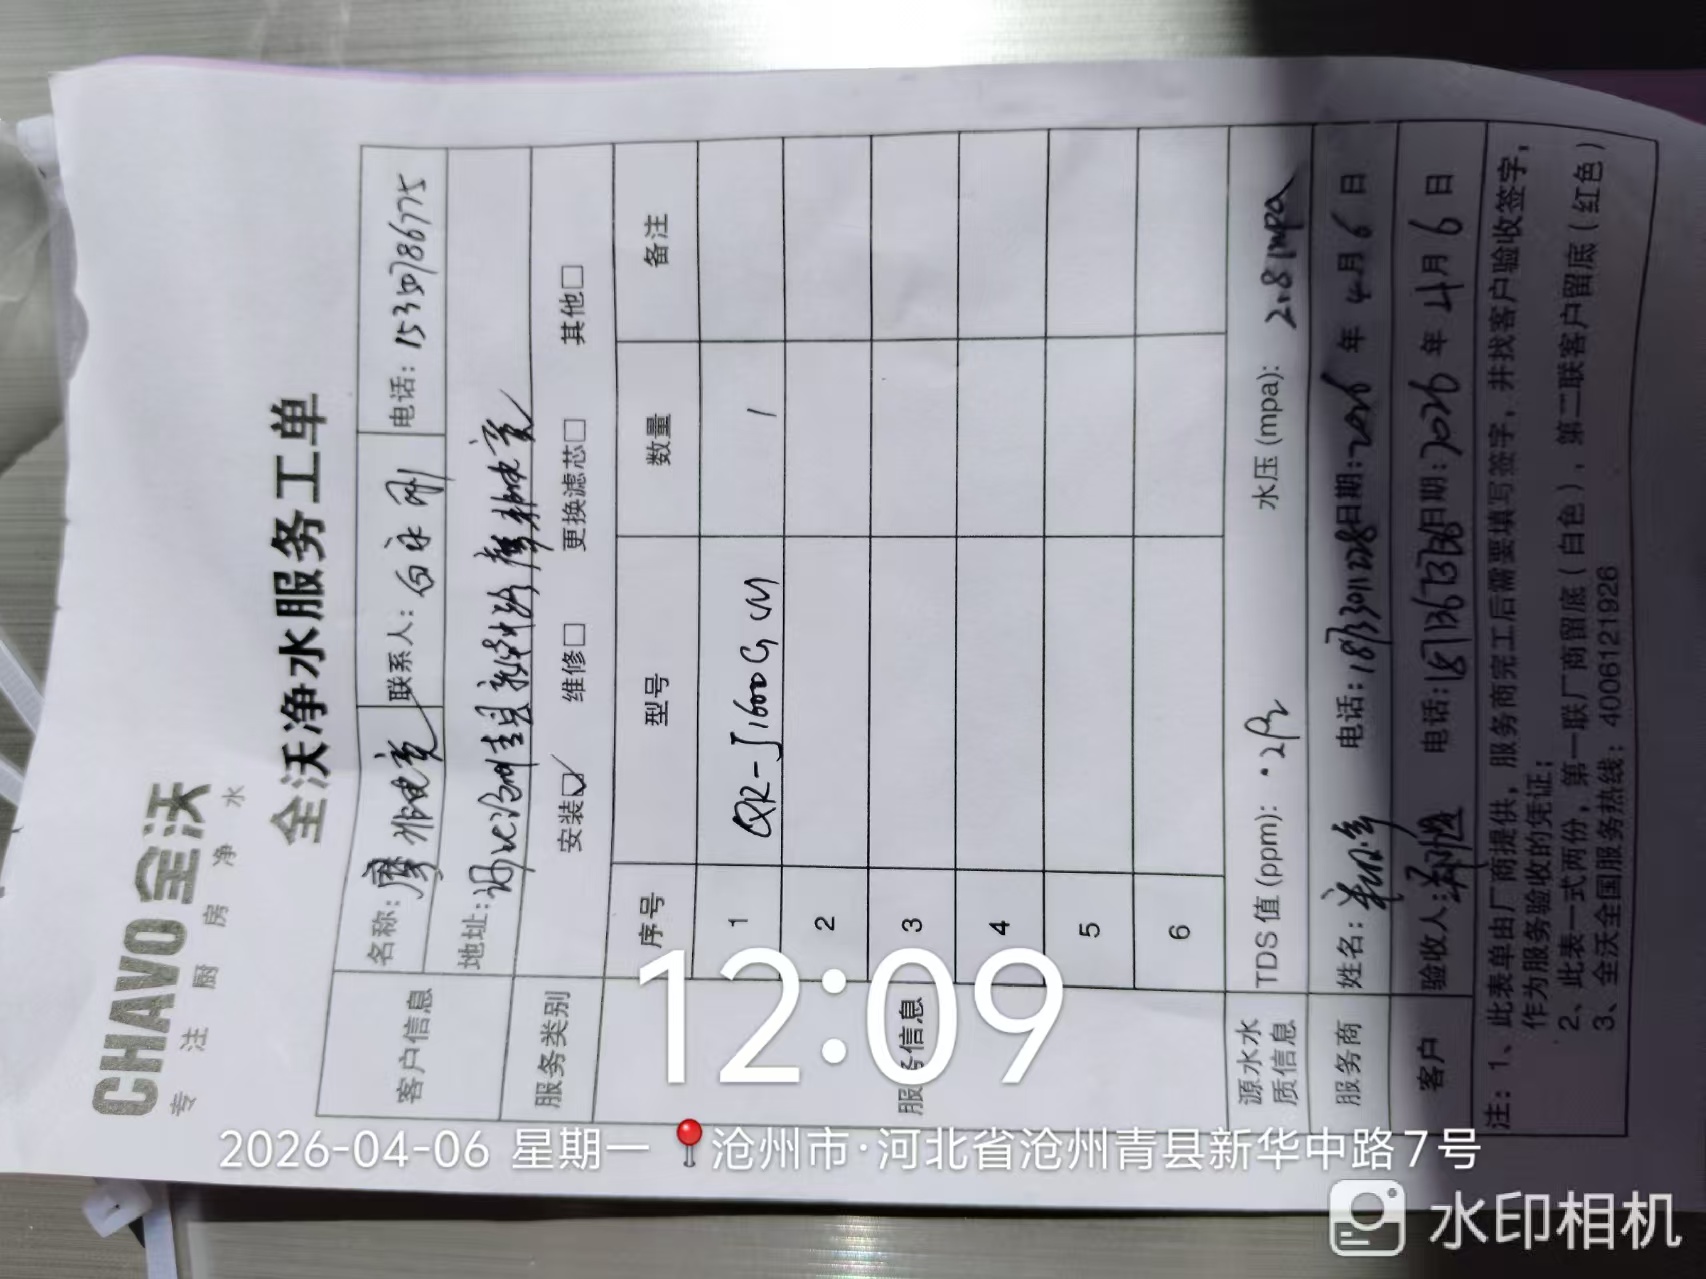 CHAVO 全沃
专注厨房净水
全沃净水服务工单
客户信息 名称: 联系人: 白永刚 电话:
地址: 河北沧州青县新华中路
服务类别 安装☑ 维修□ 更换滤芯□ 其他□
服务信息 序号 型号 数量 备注
1 QR-J1600G 1
2
3
4
5
6
源水水质信息 TDS 值 (ppm): 水压 (mpa): 2.8 mpa
服务商 姓名: 电话: 日期: 2026 年 4 月 6 日
客户 验收人: 电话: 日期: 2026 年 4 月 6 日
注: 1、此表单由厂商提供, 服务商完工后需要填写签字, 并找客户验收签字,
作为服务验收的凭证;
2、此表一式两份, 第一联厂商留底 (白色), 第二联客户留底 (红色)
3、全沃全国服务热线: 4006121926
12:09
2026-04-06 星期一 沧州市·河北省沧州青县新华中路7号
水印相机